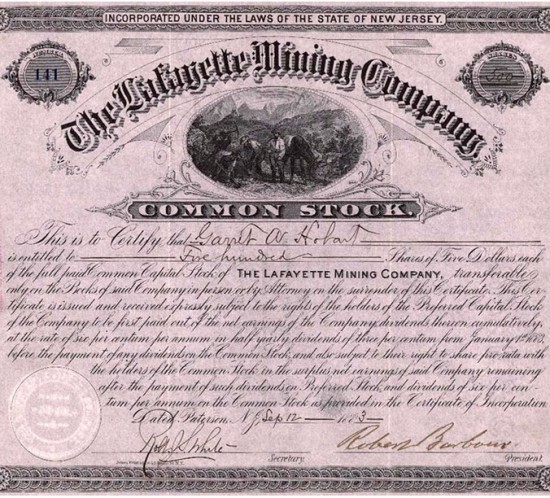 INCORPORATED UNDER THE LAWS OF THE STATE OF NEW JERSEY.
141
The Lafayette Mining Company
COMMON STOCK.
This is to Certify that Garret A Hobart
is entitled to Five hundred Shares of Five Dollars each
of the full paid Common Capital Stock of THE LAFAYETTE MINING COMPANY, transferable
only on the Books of said Company in person or by Attorney on the surrender of this Certificate. This Cer-
tificate is issued and received expressly subject to the rights of the holders of the Preferred Capital Stock
of the Company to be first paid out of the net earnings of the Company dividends thereon cumulatively,
at the rate of six per centum per annum in half yearly dividends of three per centum from January 1st
before the payment of any dividends on the Common Stock, and also subject to their right to share pro rata with
the holders of the Common Stock in the surplus net earnings of said Company remaining
after the payment of such dividends on Preferred Stock, and dividends of six per cen-
tum per annum on the Common Stock as provided in the Certificate of Incorporation
Dated Paterson N.J. Sep 12
Robert Barbour
Secretary. President.